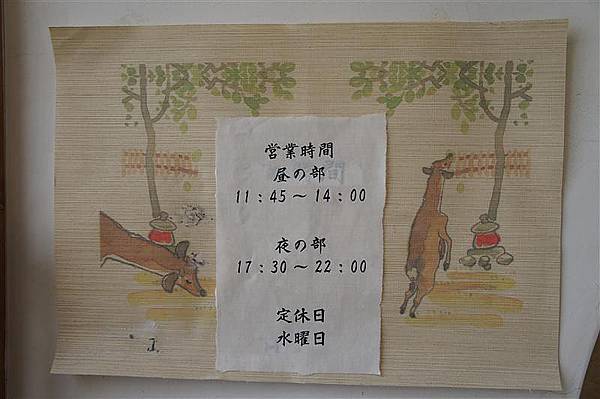 営業時間
昼の部
11：45～14：00
夜の部
17：30～22：00
定休日
水曜日